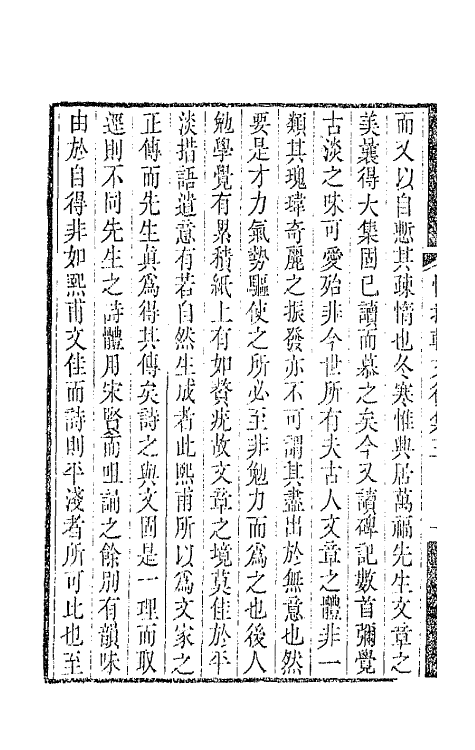 而又以自慙其疎惰也冬寒惟興居萬福先生文章之
美曩得大集固已讀而慕之矣今又讀碑記數首彌覺
古淡之味可愛殆非今世所有夫古人文章之體非一
類其瑰瑋奇麗之振發亦不可謂其盡出於無意也然
要是才力氣勢驅使之所必至非勉力而爲之也後人
勉學覺有累積紙上有如贅疣故文章之境莫佳於平
淡措語遣意有若自然生成者此熙甫所以爲文家之
正傳而先生眞爲得其傳矣詩之與文固是一理而取
逕則不同先生之詩體用宋賢而咀誦之餘別有韻味
由於自得非如熙甫文佳而詩則平淺者所可比也至